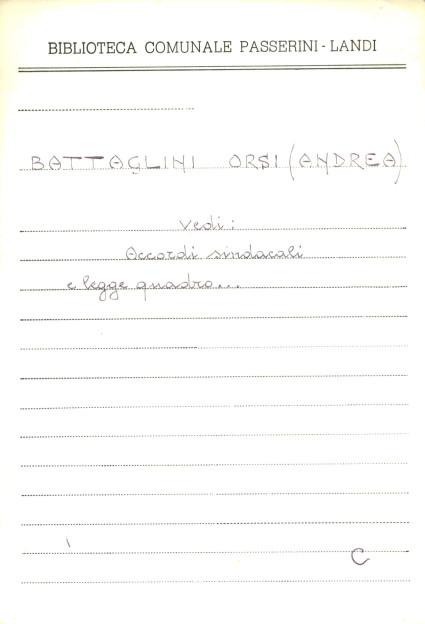 BIBLIOTECA COMUNALE PASSERINI - LANDI
BATTAGLINI ORSI (ANDREA)
Vedi:
Accordi sindacali
e legge quadro...
C